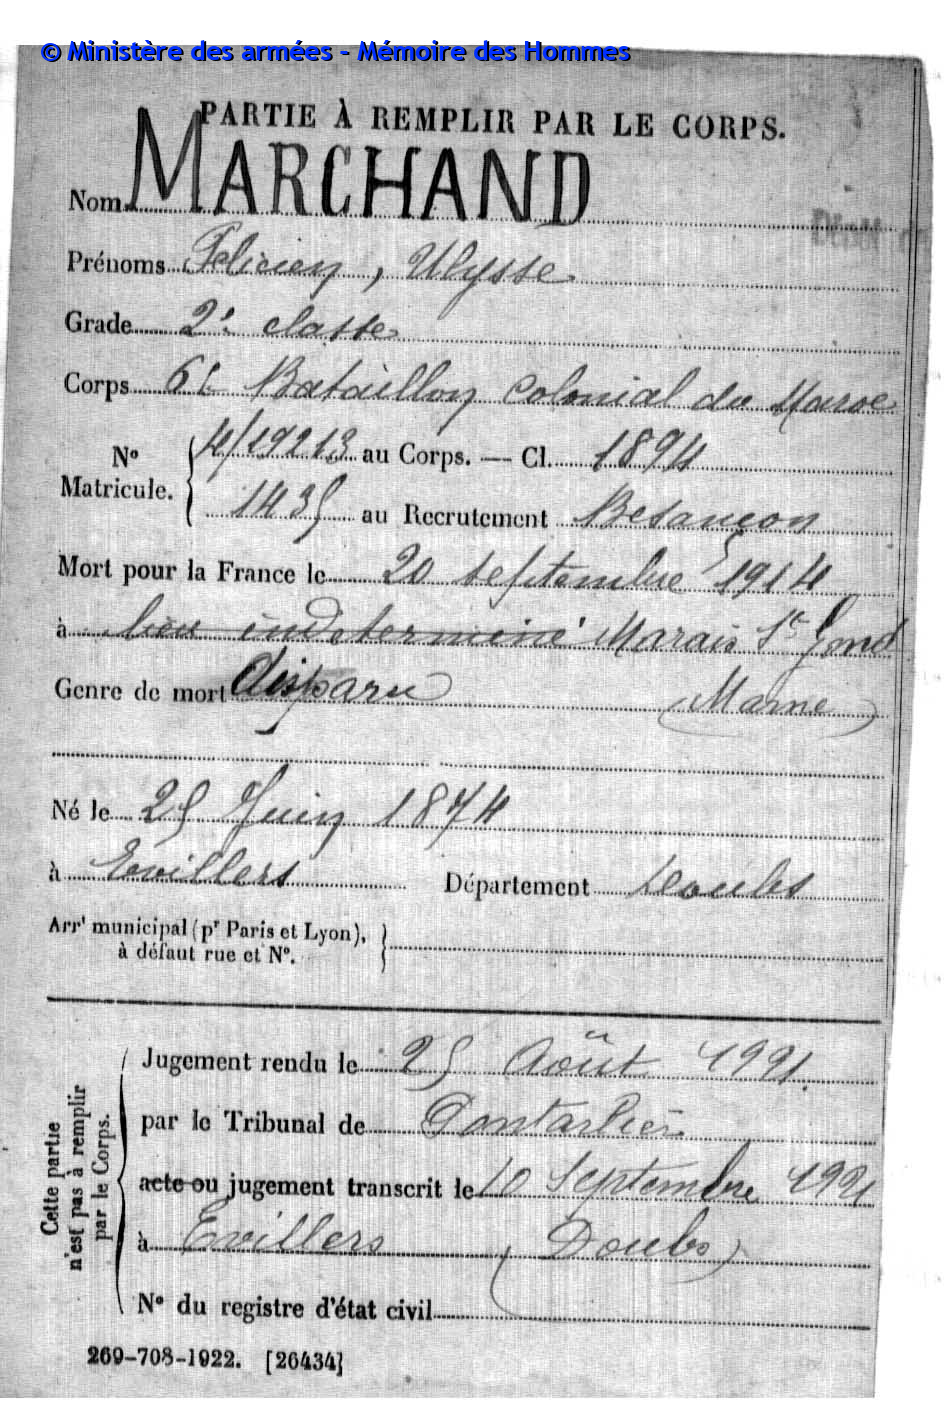 © Ministère des armées - Mémoire des Hommes
PARTIE À REMPLIR PAR LE CORPS.
Nom MARCHAND
Prénoms Félicien, Ulysse
Grade 2e classe
Corps 6e Bataillon Colonial du Maroc
N° Matricule. { 4/19213 au Corps. — Cl. 1894
1435 au Recrutement Besançon
Mort pour la France le 20 septembre 1914
à lieu indéterminé Marais St Gond
Genre de mort disparu (Marne)
Né le 25 Juin 1874
à Evillers Département Doubs
Arrt municipal (pr Paris et Lyon),
à défaut rue et N°.
Cette partie n'est pas à remplir par le Corps.
Jugement rendu le 25 Août 1921.
par le Tribunal de Pontarlier
acte ou jugement transcrit le 10 Septembre 1921
à Evillers (Doubs)
N° du registre d'état civil
269-708-1922. [26434]